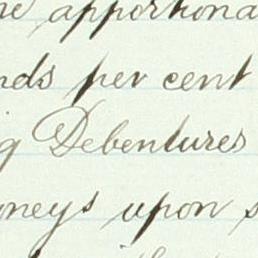 apportiona
nds per cent
g Debentures
oneys upon s